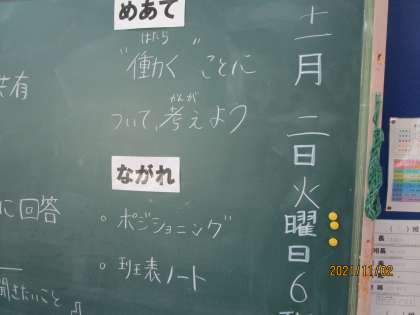 十一月二日火曜日6
めあて
"働く"ことに
はたら
ついて、考えよう
かんが
ながれ
。ポジショニング
。班表ノート
共有
に回答
聞きたいこと
2021/11/02